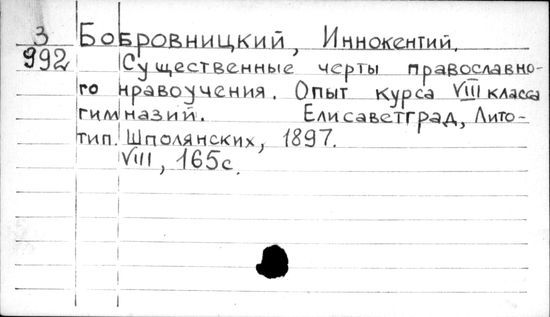 З Бобровницкий, Иннокентий.
992 Существенные черты православно-
го нравоучения. Опыт курса VIII класса
гимназий. Елисаветград, Лито-
тип. Шполянских, 1897.
VIII, 165с.